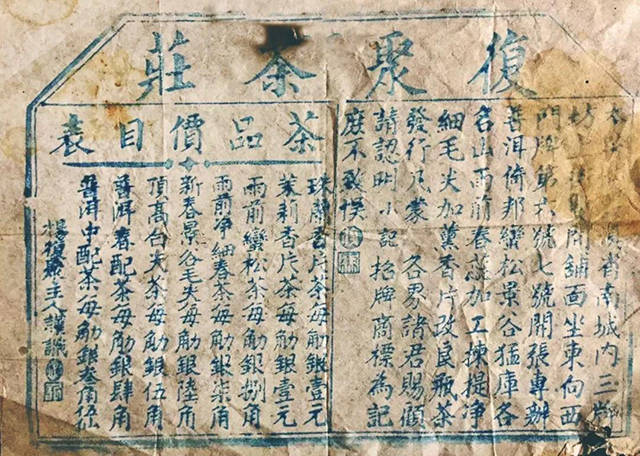 復聚茶莊
省南城内三牌
坊開舖面坐東向西
門牌第六號七號開張專辦
普洱倚邦蠻松景谷猛庫各
名山雨前春蕊加工揀提淨
細毛尖加薰香片改良瓶茶
發行凡蒙 各界諸君賜顧
請認明小記招牌商標為記
庶不致悞
茶品價目表
珠蘭香片茶每觔銀壹元
茉莉香片茶每觔銀壹元
雨前蠻松茶每觔銀捌角
雨前淨細春茶每觔銀柒角
新春景谷毛尖每觔銀陸角
頂高白尖茶每觔銀伍角
普洱春配茶每觔銀肆角
普洱中配茶每觔銀叁角伍
復聚主人謹識